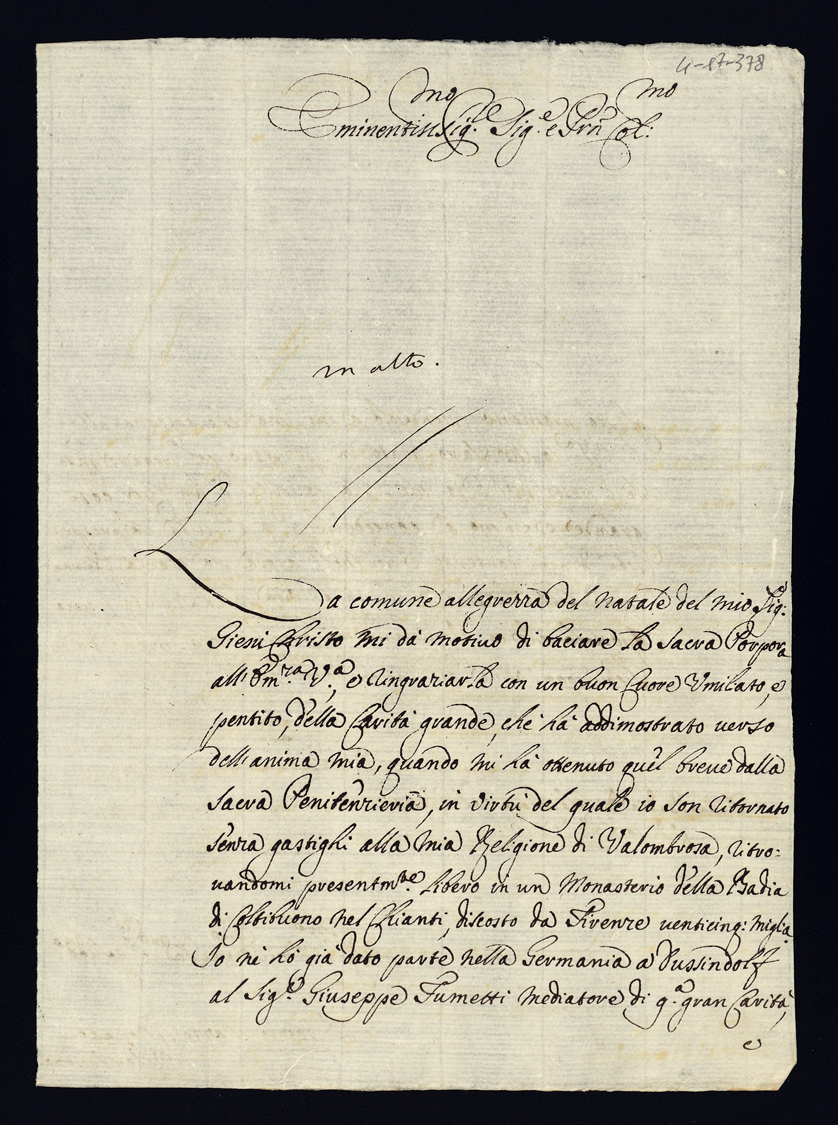 4-17-378
Eminentiss:mo Sig:re Sig:e e Prñ Col:mo
in alto.
La comune allegrezza del natale del mio Sig:e
Giesu Christo mi dà motivo di baciare la sacra Porpora
all' Em:za V:a, e ringraziarla con un buon Cuore Umiliato, e
pentito, della Carità grande, che hà addimostrato verso
dell'anima mia, quando mi hà ottenuto quel breve dalla
sacra Penitenzieria, in virtù del quale io son ritornato
senza gastighi alla mia Religione di Valombrosa, ritro=
vandomi presentm:te libero in un Monasterio della Badia
di Coltibuono nel Chianti, discosto da Firenze venticinq: miglia.
Io ne hò già dato parte nella Germania à Dussindolf
al Sig:e Giuseppe Fumetti mediatore di q:a gran Carità,
e